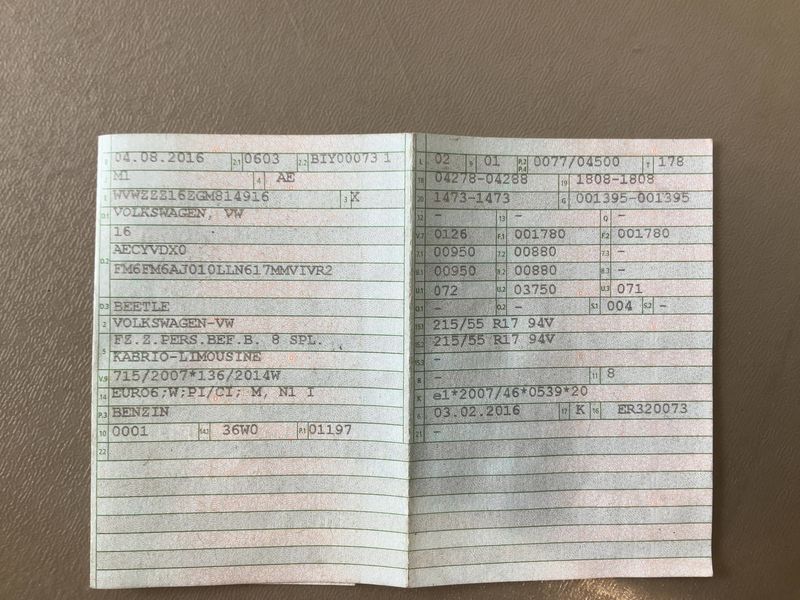 B 04.08.2016 2.1 0603 2.2 BIY00073 1
J M1 4 AE
E WVWZZZ16ZGM814916 3 X
D.1 VOLKSWAGEN, VW
16
D.2 AECYVDX0
FM6FM6AJ010LLN617MMVIVR2
D.3 BEETLE
2 VOLKSWAGEN-VW
5 FZ.Z.PERS.BEF.B. 8 SPL.
KABRIO-LIMOUSINE
V.9 715/2007*136/2014W
14 EURO6;W;PI/CI; M, N1 I
P.3 BENZIN
10 0001 14.1 36W0 P.1 01197
22
L 02 9 01 P.2 P.4 0077/04500 T 178
18 04278-04288 19 1808-1808
20 1473-1473 G 001395-001395
12 - 13 - Q -
V.7 0126 F.1 001780 F.2 001780
7.1 00950 7.2 00880 7.3 -
8.1 00950 8.2 00880 8.3 -
U.1 072 U.2 03750 U.3 071
O.1 - O.2 - S.1 004 S.2 -
15.1 215/55 R17 94V
15.2 215/55 R17 94V
15.3 -
R - 11 8
K e1*2007/46*0539*20
6 03.02.2016 17 K 16 ER320073
21 -